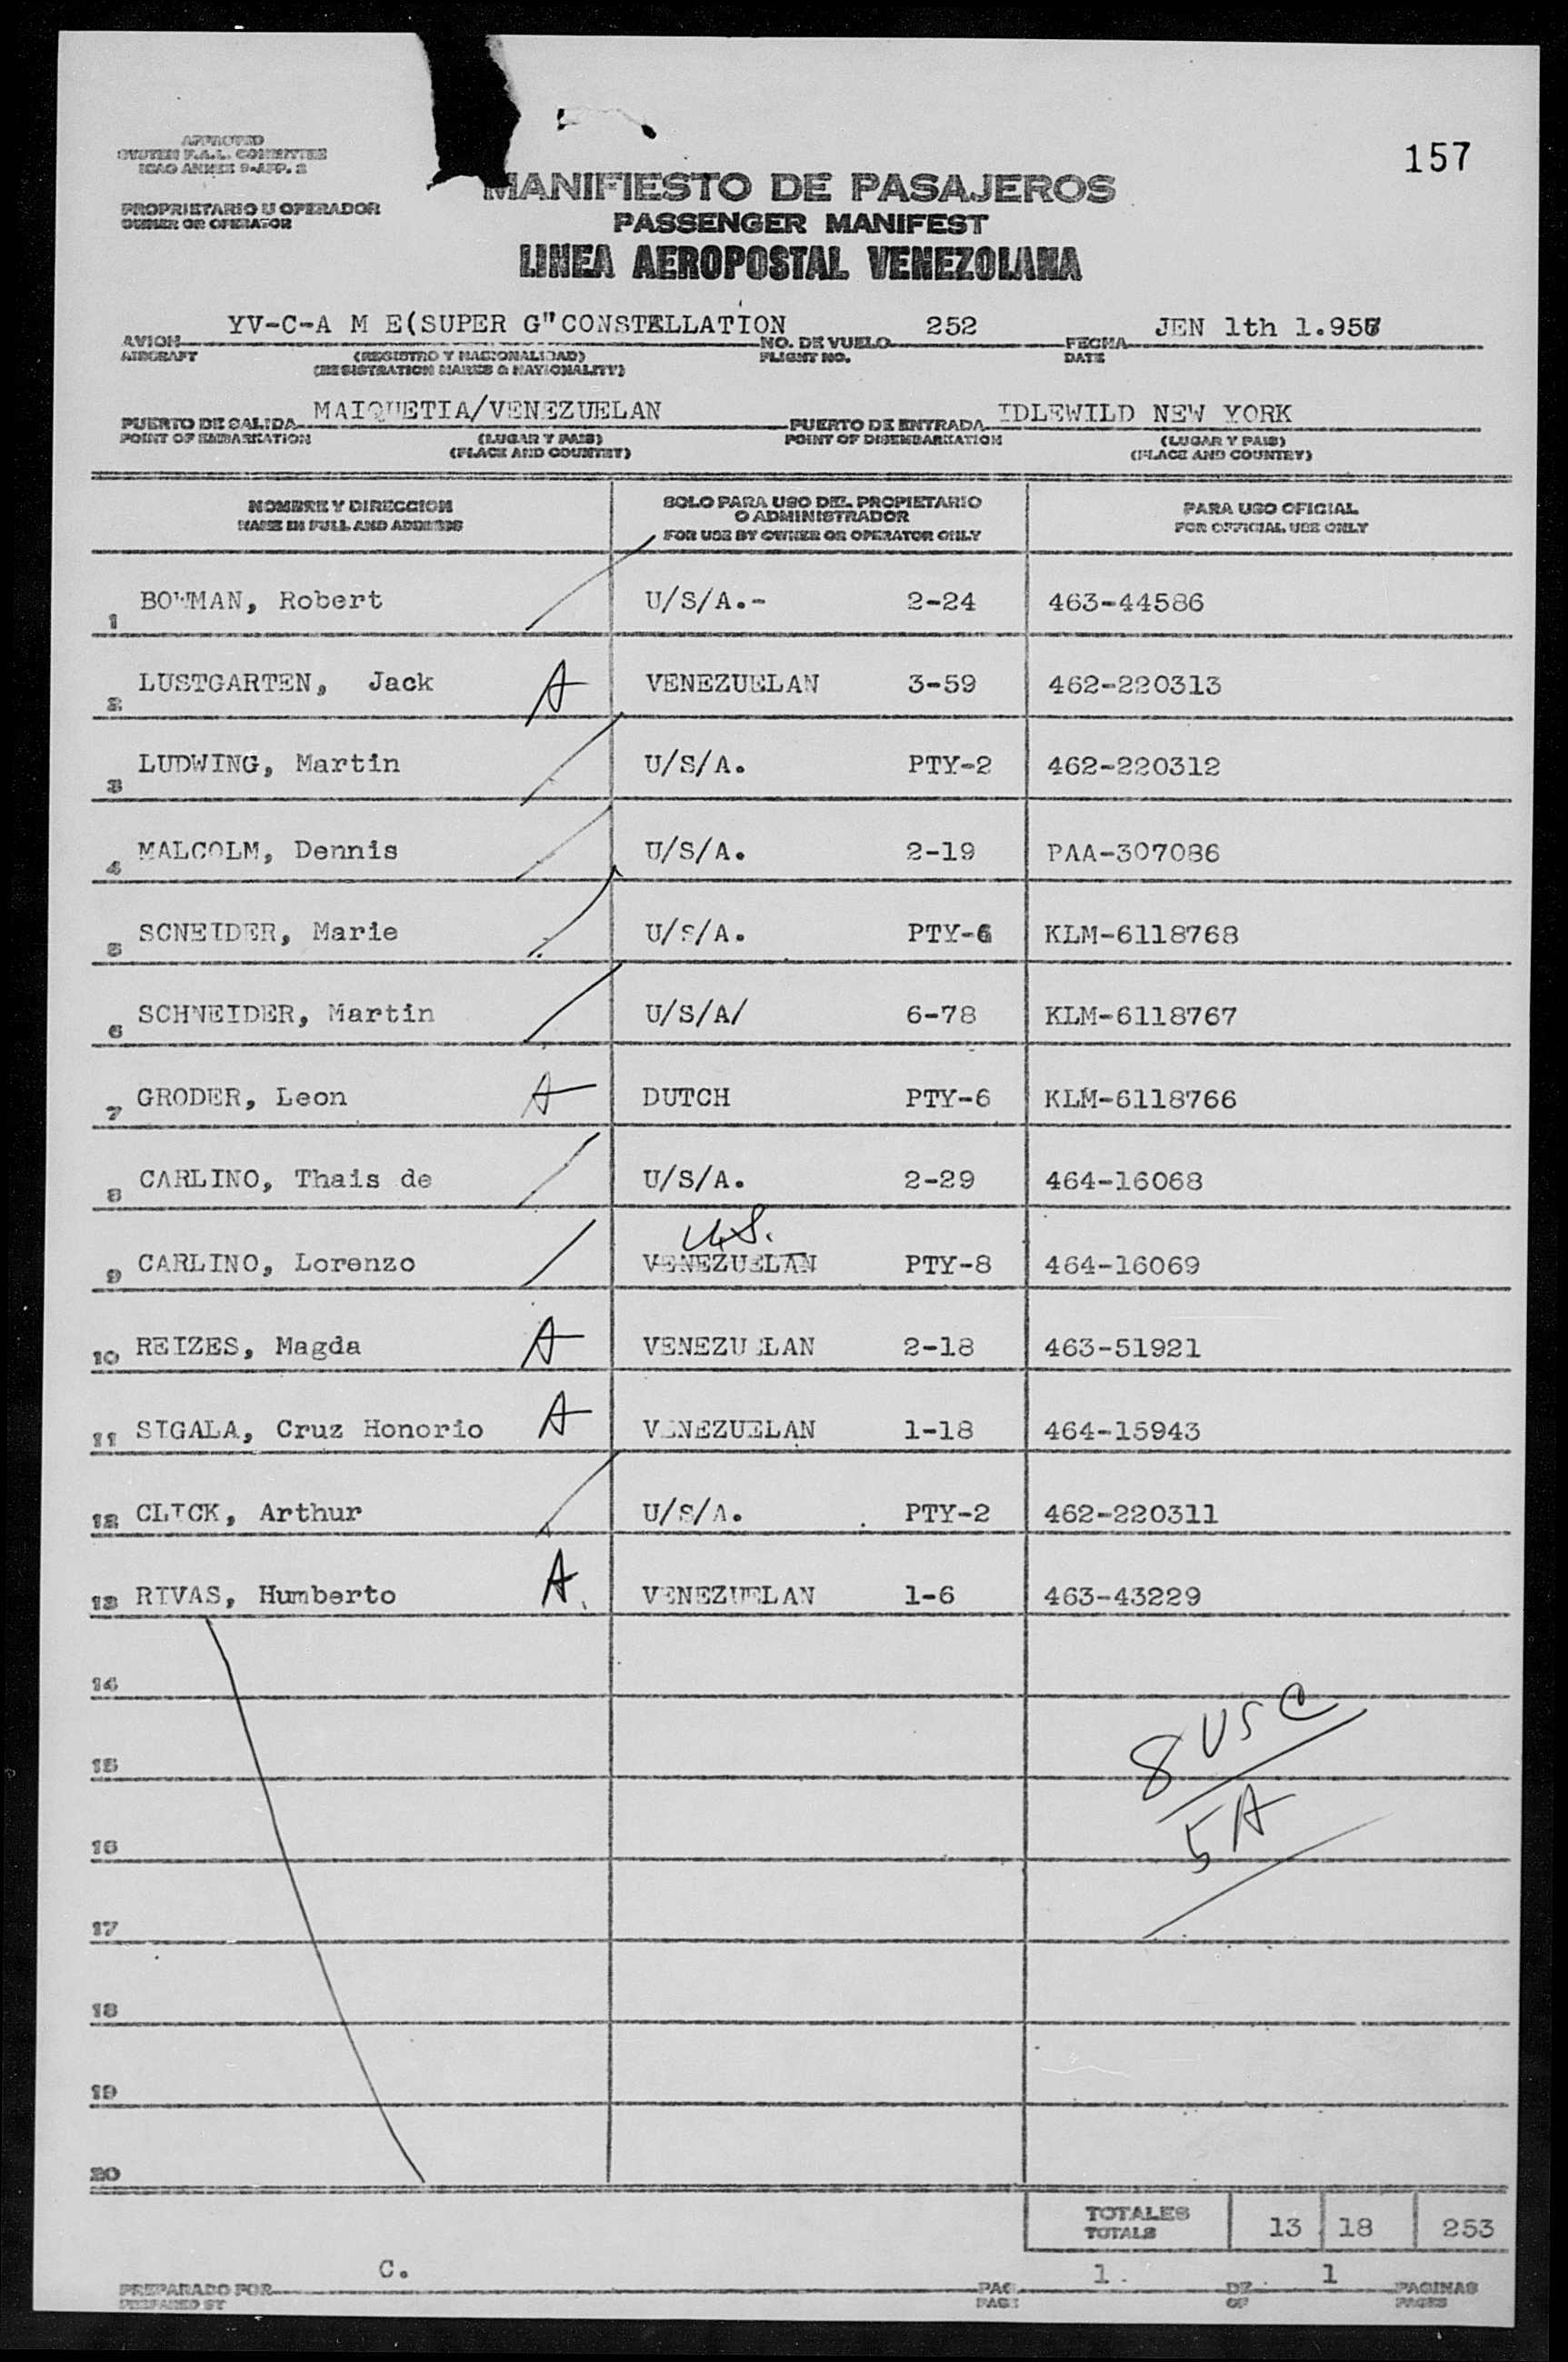 157
APPROVED
SYSTEM F.A.L. COMMITTEE
ICAO ANNEX 9-APP. 2
PROPRIETARIO U OPERADOR
OWNER OR OPERATOR
MANIFIESTO DE PASAJEROS
PASSENGER MANIFEST
LINEA AEROPOSTAL VENEZOLANA
AVION YV-C-A M E(SUPER G" CONSTELLATION NO. DE VUELO 252 FECHA JEN 1th 1.957
AIRCRAFT (REGISTRO Y NACIONALIDAD) FLIGHT NO. DATE
(REGISTRATION MARKS & NATIONALITY)
PUERTO DE SALIDA MAIQUETIA/VENEZUELAN PUERTO DE ENTRADA IDLEWILD NEW YORK
POINT OF EMBARKATION (LUGAR Y PAIS) POINT OF DISEMBARKATION (LUGAR Y PAIS)
(PLACE AND COUNTRY) (PLACE AND COUNTRY)
NOMBRE Y DIRECCION SOLO PARA USO DEL PROPIETARIO O ADMINISTRADOR PARA USO OFICIAL
NAME IN FULL AND ADDRESS FOR USE BY OWNER OR OPERATOR ONLY FOR OFFICIAL USE ONLY
1 BOWMAN, Robert U/S/A.- 2-24 463-44586
2 LUSTGARTEN, Jack A VENEZUELAN 3-59 462-220313
3 LUDWING, Martin U/S/A. PTY-2 462-220312
4 MALCOLM, Dennis U/S/A. 2-19 PAA-307086
5 SCNEIDER, Marie U/S/A. PTY-6 KLM-6118768
6 SCHNEIDER, Martin U/S/A/ 6-78 KLM-6118767
7 GRODER, Leon A DUTCH PTY-6 KLM-6118766
8 CARLINO, Thais de U/S/A. 2-29 464-16068
U.S.
9 CARLINO, Lorenzo VENEZUELAN PTY-8 464-16069
10 REIZES, Magda A VENEZUELAN 2-18 463-51921
11 SIGALA, Cruz Honorio A VENEZUELAN 1-18 464-15943
12 CLICK, Arthur U/S/A. PTY-2 462-220311
13 RIVAS, Humberto A. VENEZUELAN 1-6 463-43229
14
15
16
17
18
19
20
8 USC
5 A
TOTALES 13 18 253
TOTALS
PREPARADO POR C. PAG. 1. DE 1 PAGINAS
PREPARED BY PAGE OF PAGES